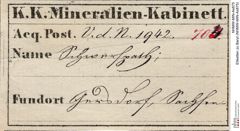 K.K. Mineralien-Kabinett.
Acq. Post. V.d.N. 1942.
Name Schwerspath;
Fundort Gersdorf, Sachsen